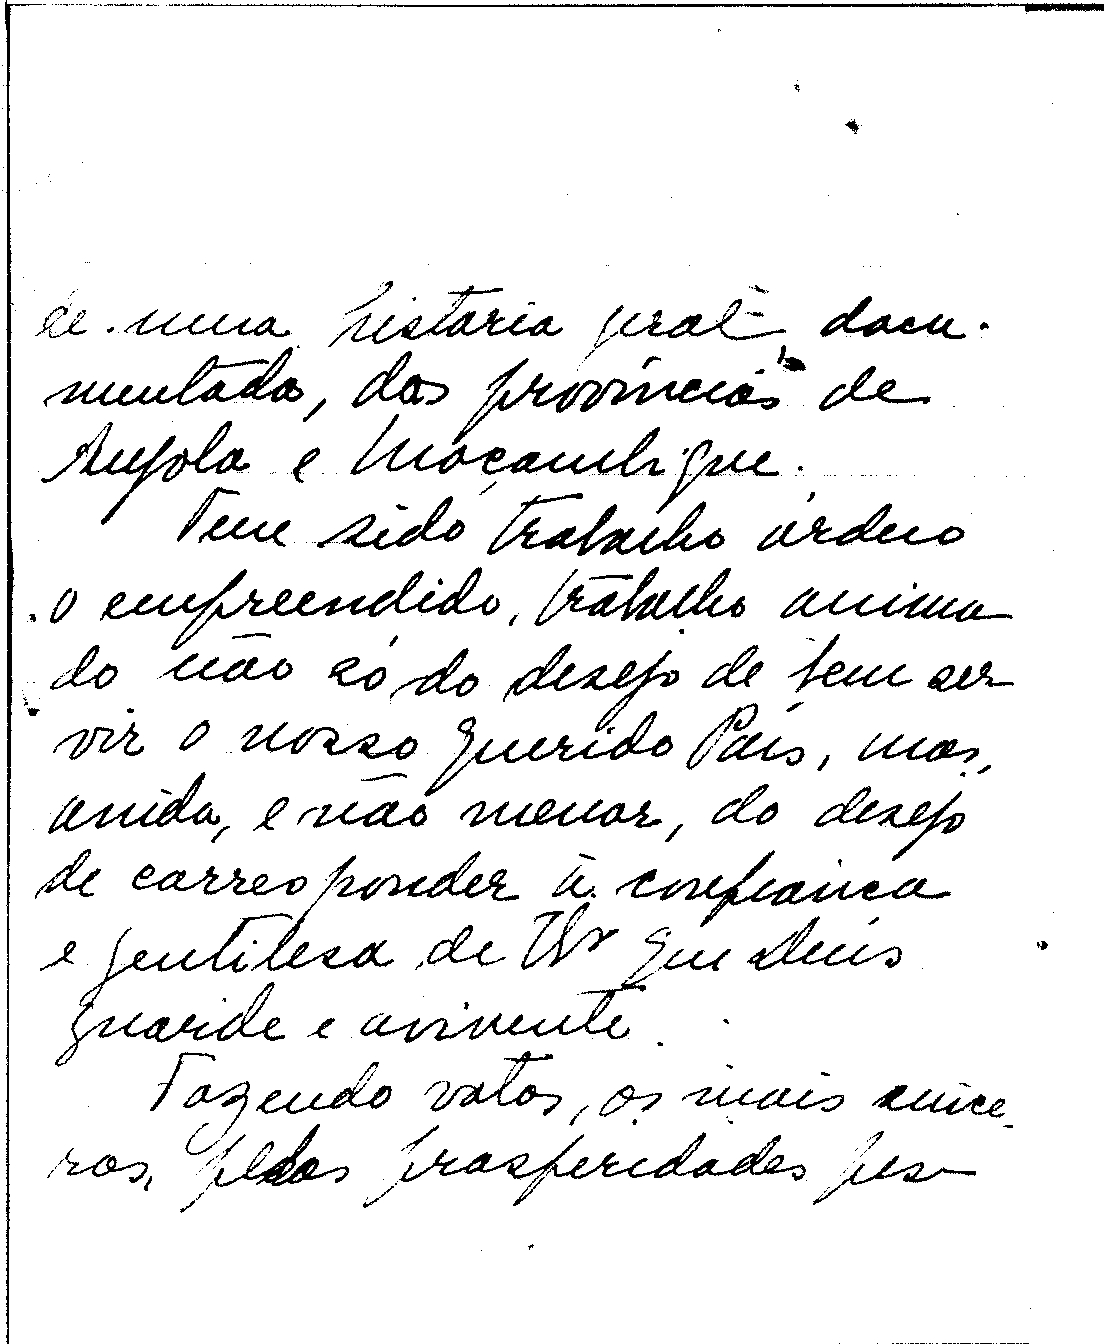 de uma historia geral, docu-
mentada, das províncias de
Angola e Moçambique.
Tem sido trabalho árduo
o empreendido, trabalho anima
do não só do desejo de bem ser
vir o nosso querido País, mas,
ainda, e não menor, do desejo
de corresponder à confiança
e gentilesa de que Deus
guarde e avivente.
Fazendo votos, os mais since-
ros, pelas prosperidades pes